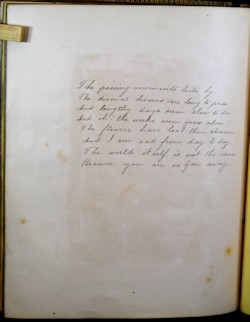 The passing moments linger by
The dismal hours are long to pass
And lengthy days seem slow to die
But oh! the weeks seem years alas!
The flowers have lost their charm
And I am sad from day to day
The world itself is not the same
Because you are so far away.